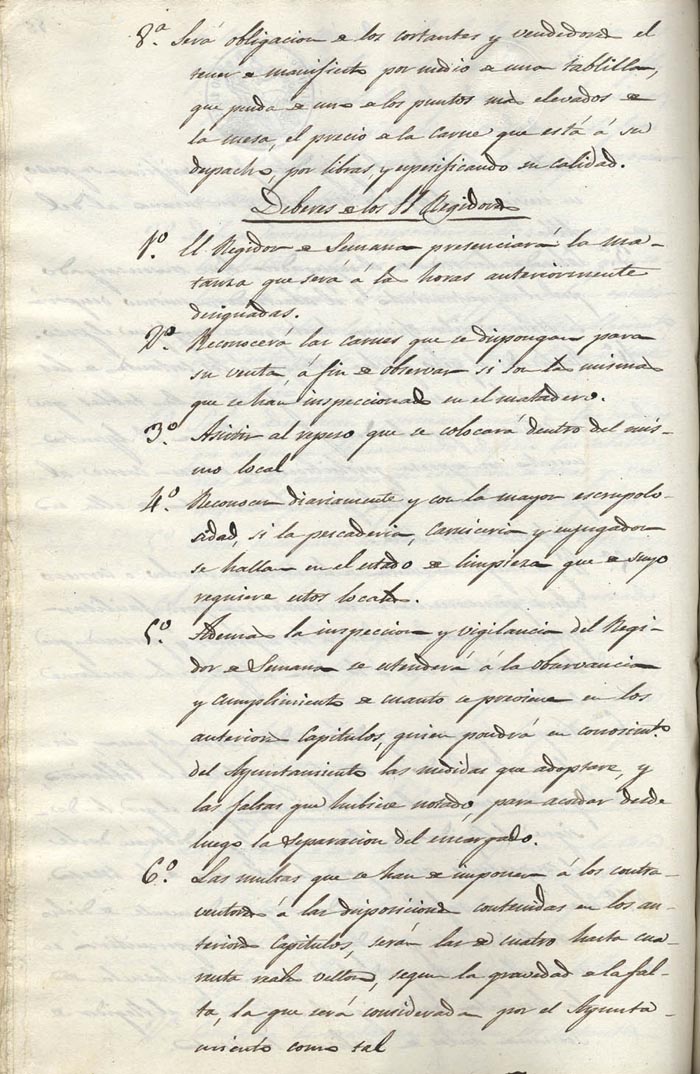 8ª. Será obligacion de los cortantes y vendedores el
tener de manifiesto por medio de una tablilla,
que penda de uno de los puntos mas elevados de
la mesa, el precio de la carne que está á su
despacho, por libras, y especificando su calidad.
Deberes de los SS. Regidores
1º. El Regidor de Semana presenciará la ma-
tanza que será á las horas anteriormente
designadas.
2º. Reconocerá las carnes que se dispongan para
su venta, á fin de observar si son las mismas
que se han inspeccionado en el matadero.
3º. Asistir al repeso que se colocará dentro del mis-
mo local
4º. Reconocer diariamente y con la mayor escrupolo-
sidad, si la pescaderia, carniceria y enjugador
se hallan en el estado de limpieza que de suyo
requiere estos locales.
5º. Ademas la inspeccion y vigilancia del Regi-
dor de Semana se estenderá á la observancia
y cumplimiento de cuanto se previene en los
anteriores Capitulos, quien pondrá en conocimto.
del Ayuntamiento las medidas que adoptare, y
las faltas que hubiere notado, para acordar desde
luego la separacion del encargado.
6º. Las multas que se han de imponer á los contra-
ventores á las disposiciones contenidas en los an-
teriores Capitulos, serán las de cuatro hasta cua-
renta reales vellon, segun la gravedad de la fal-
ta, la que será considerada por el Ayunta-
miento como tal